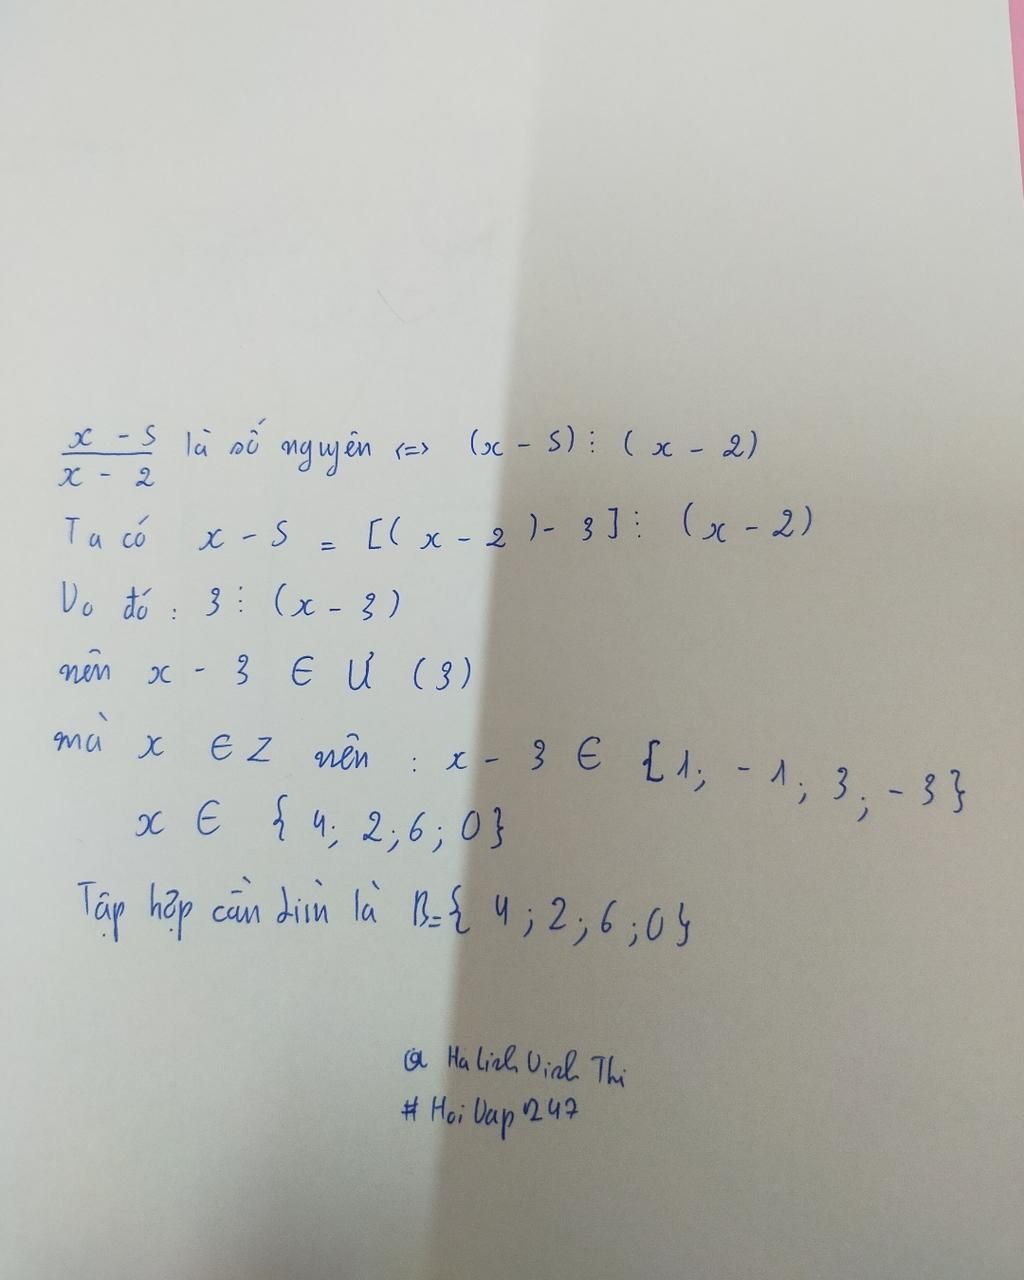 x - 5 / x - 2 là số nguyên <=> (x - 5) ⋮ (x - 2)
Ta có x - 5 = [(x - 2) - 3] ⋮ (x - 2)
Do đó : 3 ⋮ (x - 3)
nên x - 3 ∈ Ư (3)
mà x ∈ Z nên : x - 3 ∈ {1; -1; 3; -3}
x ∈ {4; 2; 6; 0}
Tập hợp cần tìm là B={4; 2; 6; 0}
@ Ha Linh Vinh Thi
# Hoi Dap 247